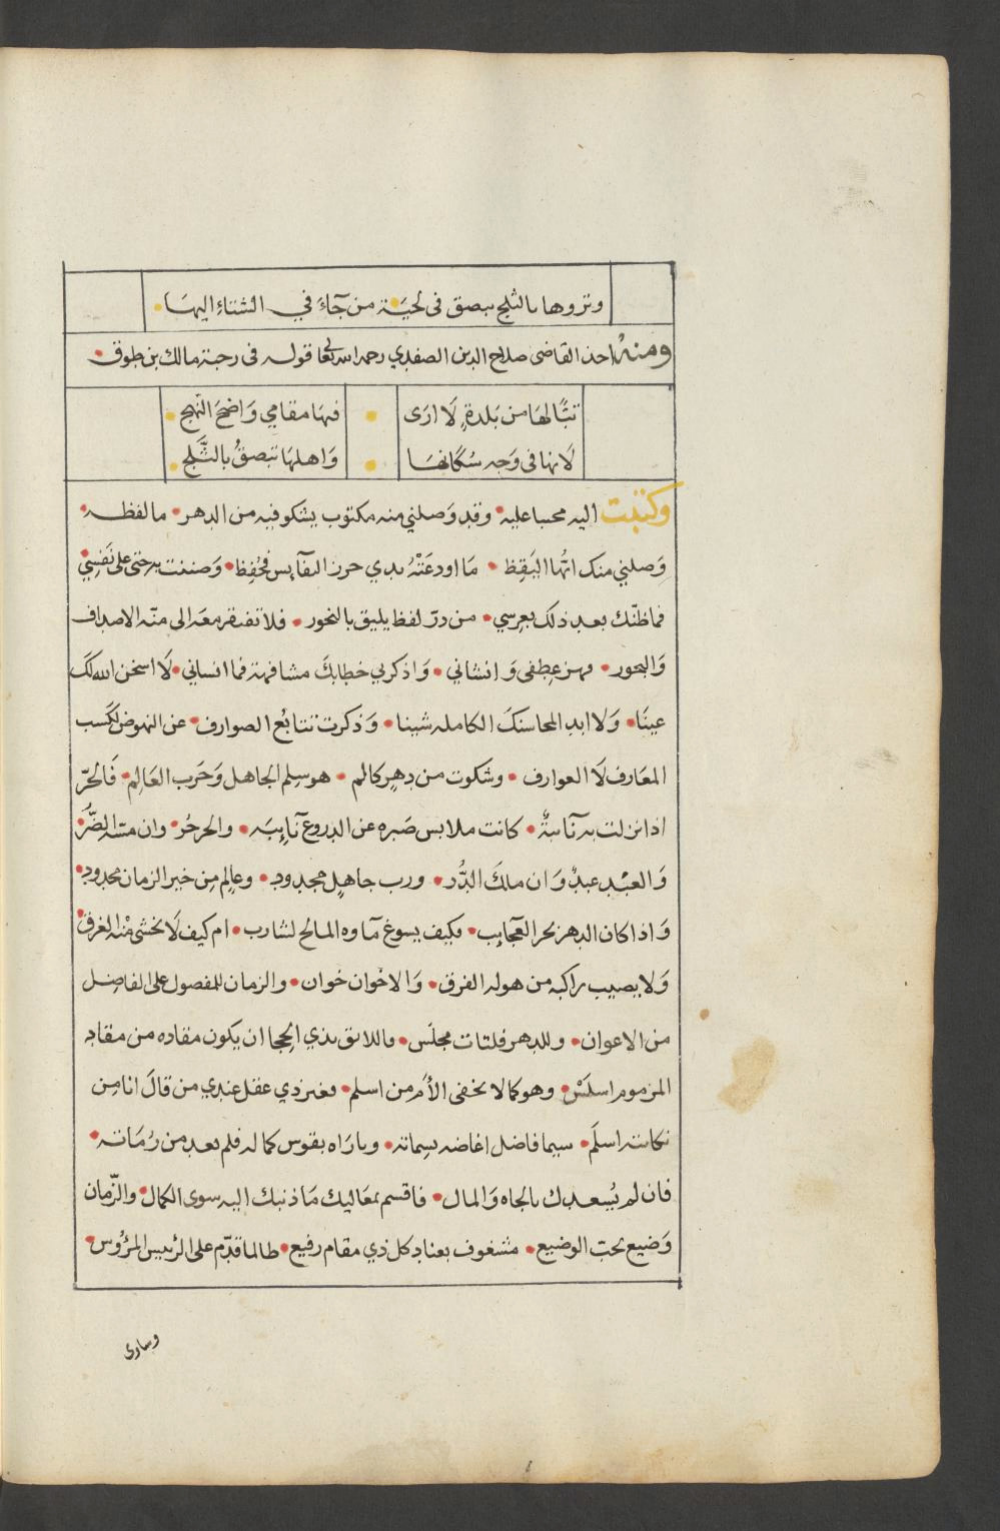 وتروها بالثلج تبصق فى لحيَة من جَآءَ في الشتاءِ اليهَا
ومنهُ اخذ القاضى صلاح الدين الصفدي رحمه الله تعا قوله فى رحبة مالك بن طوق
تبًّا لهَا من بَلدةٍ لَا ارَى فيهَا مقامي وَاضحَ النّهج
لَانها فى وَجه سُكّانهَا وَاهلهَا تبصقُ بالثَّلج
وكتبت اليه مجيبا عليه وقد وَصلني منه مكتوب يشكو فيه من الدهر ما لفظه
وَصلني منك ايُّها اليَقِظ مَا اودعَتْهُ يدي حرز النفآيس فحُفِظ وَضننت به حتى على نَفسِيْ
فما ظنّك بعد ذلك بعِرسي من درّ لفظ يليق بالنحور فلا تفتقر معَه الى منّه الاصداف
وَالبحور وهزعِطفى وَانشاني وَاذكرني خطابكَ مشافهة فما انساني لَا اسخن الله لكَ
عينًا وَلا ابد المحاسنكَ الكامله شينا وَذكرت تتابُع الصوارف عن النهوض لكَسب
المعَارف لَا العوارف وشكوت من دهرٍ كالم هو سِلم الجاهل وَحَرب العَالِم فَالحُرّ
اذا نزلت به نآئبةٌ كانت ملابس صَبره عن الدروع نآيِبَه والحر حُر وان مسّه الضُّر
وَالعبْد عبدٌ وَان ملكَ الدُّر ورب جاهلٍ مجدود وعالِم مِن خير الزمان محدود
وَاذا كان الدهر بحر العجآيب فكيف يسوغ مآوه المالح لشارب ام كيف لَا يخشى منْه الغرق
وَلا يصيب راكبه من هوله الفرق وَالاخوان خوان والزمان للمفضول على الفاضِل
من الاعوان وللدهر فلتات مجلَس واللائق بذي الحِجا ان يكون مقاده من مقاد
المزموم اسلَسْ وهو كما لا يخفى الأَم من اسلم عندي من قالَ انا مِن
نكايته اسلَم سيما فاضل اغاضه بسماته وبارَاه بقوس كماله فلم يعد من رُمَاته
فان لم يُسعدك بالجاه وَالمال فاقسم بمعَاليك مَا ذنبك اليه سوى الكمال والزّمان
وَضيع يحب الوضيع مشغوف بعناد كل ذي مقام رفيع طالما قدّم على الرئيس المرؤُوس
وساوى